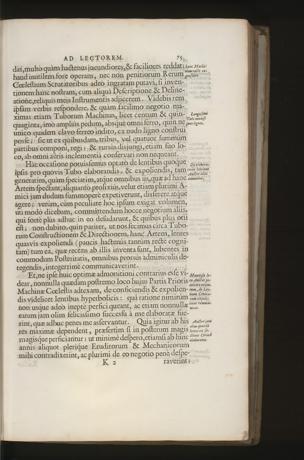 AD LECTOREM. 75
das, multò quàm hactenus jucundiores, & faciliores reddat:
haud inutilem fore operam, nec non penitiorum Rerum
Cœlestium Scrutatoribus adeo ingratam putavi, si inven-
tionem hanc nostram, cum aliqua Descriptione & Deline-
atione, reliquis meis Instrumentis adjicerem. Videbis rem
ipsam verbis respondere, & quàm facilimo negotio ma-
ximas etiam Tuborum Machinas, licet centum & quin-
quaginta, imò ampliùs pedum, absque omni ferro, quin ne
unico quidem clavo ferreo indito, ex nudo ligno construi
posse; sic ut ex quibusdam, tribus, vel quatuor summùm
partibus componi, regi, & rursùs disjungi, etiam suo lo-
co, ab omni aëris inclementia conservari non nequeant.
Hac occasione potissimùm optato de lentibus quoque
ipsis pro quovis Tubo elaborandis, & expoliendis, tam
generatim, quàm speciatim, atque omnibus iis, quæ ad hanc
Artem spectant, aliquanto prolixiùs, velut etiam plurimi A-
mici jam dudum summopere expetiverunt, disserere atque
agere; verùm, cùm peculiare hoc ipsum exigat volumen,
uti modo dicebam, committendum hocce negotium aliis,
qui fortè plus adhuc in eo desudarunt, & quibus plus otii
est; non dubito, quin pariter, ut nos fecimus circa Tubo-
rum Constructionem & Directionem, hanc Artem, lentes
quasvis expoliendi (paucis hactenus tantùm rectè cogni-
tam) tum ea, quæ rectea ab illis inventa sunt, lubentes in
commodum Posteritatis, omnibus prorsùs adminiculis de-
tegendis, integerrimè communicaverint.
Et, ne ipse huic optimæ adhortationi contrarius esse vi-
dear, nonnulla quædam postremo loco hujus Partis Prioris
Machinæ Cœlestis adnexam, de conficiendis & expolien-
dis videlicet lentibus hyperbolicis: quâ ratione nimirum
non usque adeò impense perfici queant, ac etiam nonnulla-
rum jam olim felicissimo successu à me elaboratæ fue-
rint, quæ adhuc penes me asservantur. Quia igitur ab his
res maximè dependent, præsertim si in posterum magis
magisque perficiantur: ut minimè despero, etiamsi ab hinc
annis aliquot plerique Eruditorum & Mechanicorum
mihi contradixerint, ac plurimi de eo negotio penè despe-
K 2 raverint: